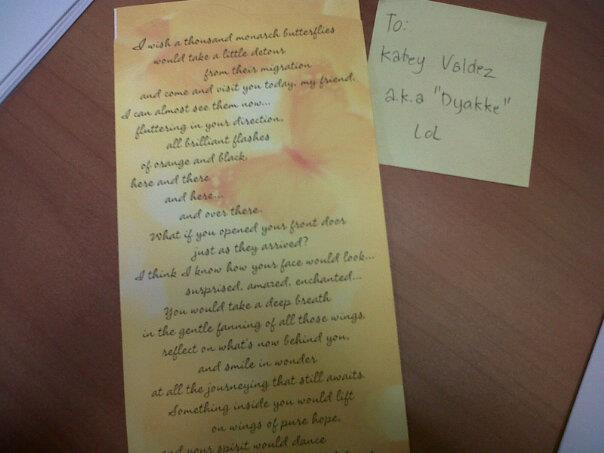 I wish a thousand monarch butterflies
would take a little detour
from their migration
and come and visit you today, my friend.
I can almost see them now...
fluttering in your direction,
all brilliant flashes
of orange and black,
here and there
and here...
and over there.
What if you opened your front door
just as they arrived?
I think I know how your face would look...
surprised, amazed, enchanted...
You would take a deep breath
in the gentle fanning of all those wings,
reflect on what's now behind you,
and smile in wonder
at all the journeying that still awaits.
Something inside you would lift
on wings of pure hope,
and your spirit would dance
To:
Katey Valdez
a.k.a "Dyakke"
LOL